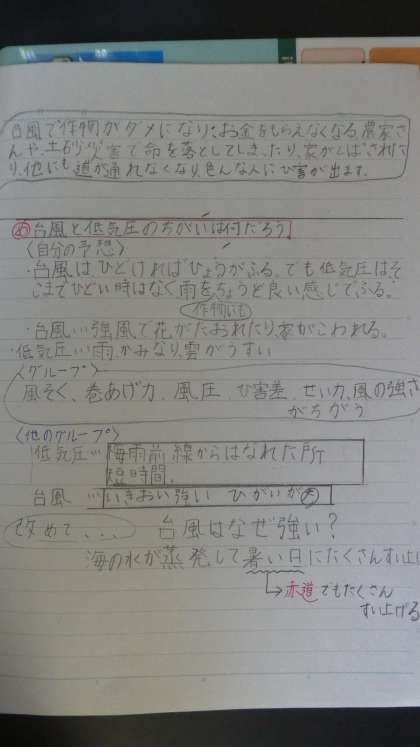 台風で作物がダメになり、お金をもらえなくなる農家さ
んや、土砂災害で命を落としてしまったり、家がとばされた
り、他にも道が通れなくなり、色んな人にひ害が出ます。
め 台風と低気圧のちがいは何だろう
〈自分の予想〉
・台風はひどければひょうがふる。でも低気圧はそ
こまでひどい時はなく雨をちょうど良い感じでふる。
作物にも
・台風…強風で花がたおれたり、家がこわれる。
・低気圧…雨、かみなり、雲がうすい
〈グループ〉
風そく、巻あげ力、風圧、ひ害差、せい力、風の強さ
がちがう
〈他のグループ〉
低気圧…梅雨前線からはなれた所
短時間。
台風…いきおい強い ひがいが大
改めて... 台風はなぜ強い?
海の水が蒸発して暑い日にたくさんすい上げ
→赤道でもたくさん
すい上げる